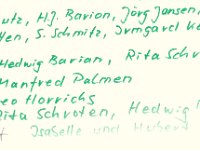 utz, H.J. Barion, Jörg Jansen,
en, S. Schmitz, Irmgard Ke
Hedwig Barian, Rita Schr
Manfred Palmen
eo Horrichs
Rita Schroten, Hedwig
Isabelle und Hubert